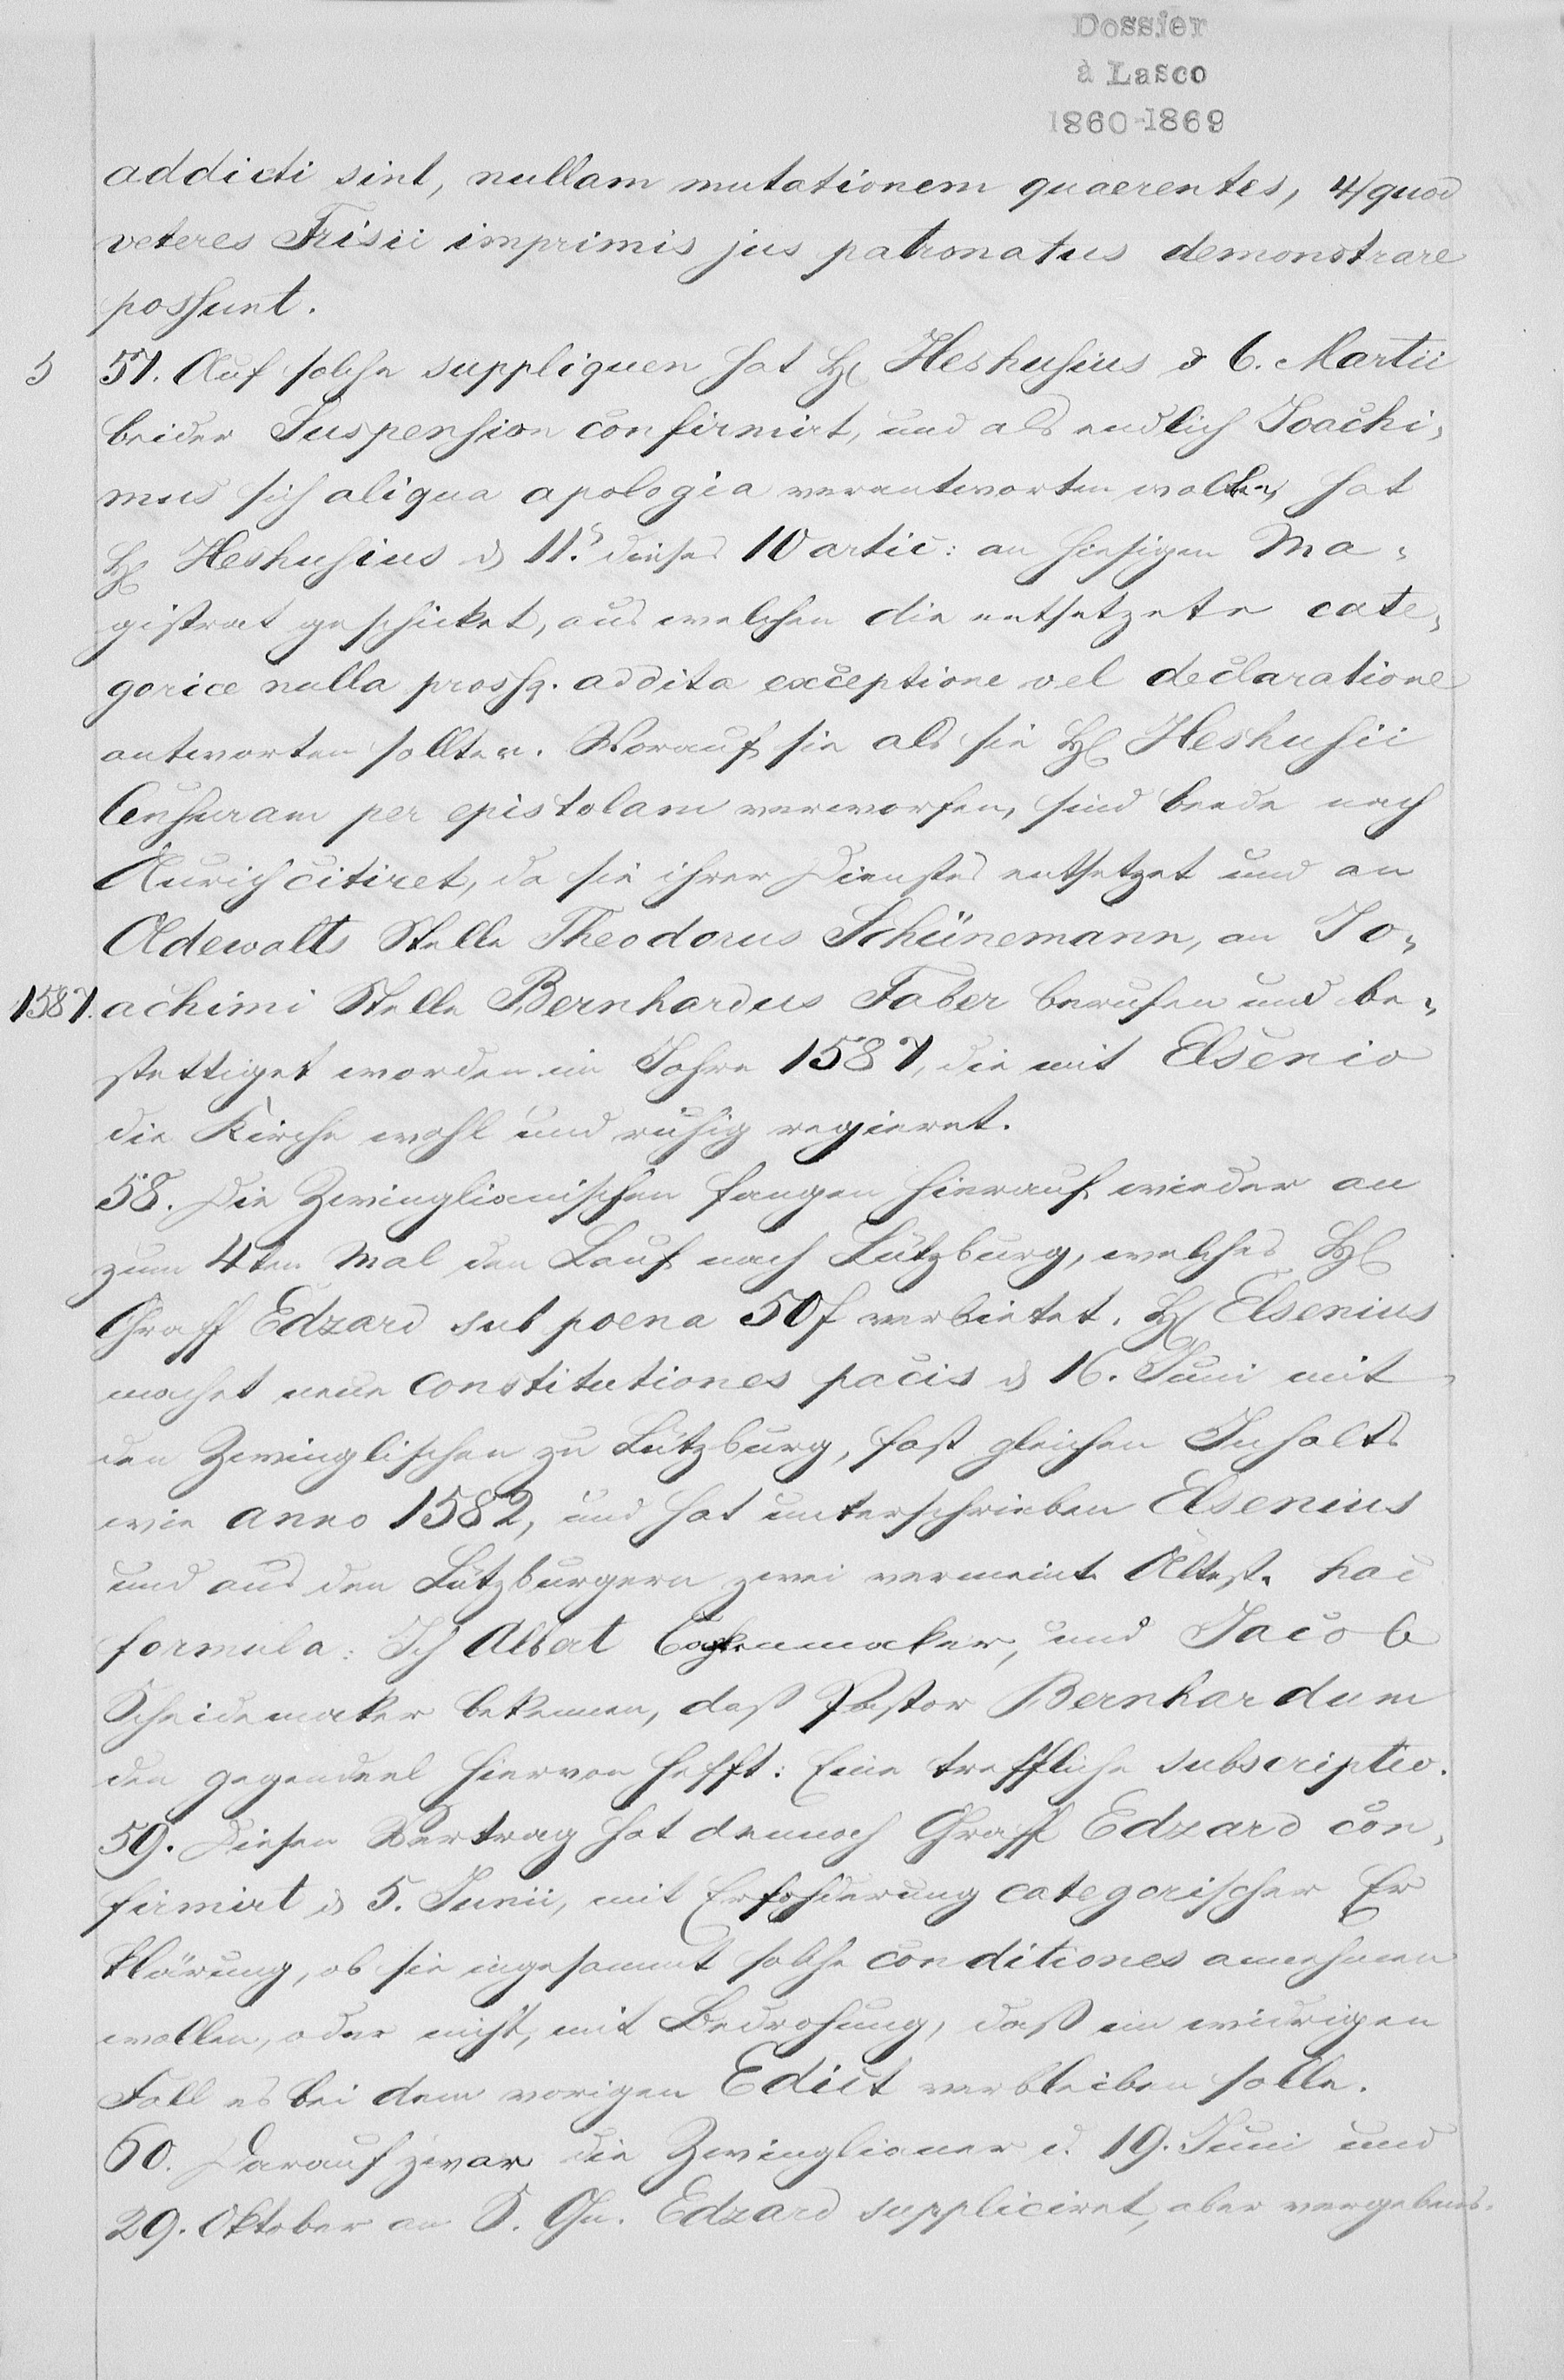 Dossier
à Lasco
1860-1869
addicti sint, nullam mutationem quaerentes, 4/ quod
veteres Frisii imprimis jus patronatus demonstrare
possunt.
57. Auf solche suppliquen hat H Heshusius d 6. Martii
beider Suspension confirmirt, und als endlich Joachi,
mus sich aliqua apologia verantworten wollen, hat
H Heshusius d 11. dieses 10 artic: an hiesigen Ma,
gistrat geschicket, aus welchen die entsetzete cate,
gorice nulla addita exceptione vel declaratione
antworten sollten. Worauf sie als sie H Heshusii
Censuram per epistolam verworfen, sind beede nach
Aurich citiret, da sie ihrer Dienstes entsetzet und an
Oldewalts Stelle Theodorus Schünemann, an Jo,
1587. achimi Stelle Bernhardus Faber berufen und be,
stettiget worden im Jahre 1587, die mit Elsenio
die Kirche wohl und ruhig regieret.
58. Die Zwinglianischen fangen hierauf wieder an
zum 4ten Mal den Lauf nach Lützburg, welches H
Graff Edzard sub poena 50 f verbietet. H Elsenius
machet neue constitutiones pacis d 16. Juni mit
den Zwinglischen zu Lützburg, fast gleichen Inhalts
wie anno 1582, und hat unterschrieben Elsenius
und aus den Lützburgern zwei vermeinte Älteste hac
formula: Ich Albert und Jacob
Scheidemaker bekennen, daß Pastor Bernhardum
den gegendeel hiervon hefft: Eine treffliche subscriptio.
59. Diesen Vertrag hat dennoch Graff Edzard con,
firmirt d 5. Junii, mit Erfohderung categorischer Er
klärung, ob sie ingesammt solche conditiones annehmen
wollen, oder nicht, mit Bedrohung, daß im widrigen
Fall es bei dem vorigen Edict verbleiben solle.
60. Darauf zwar die Zwinglianer d. 19. Juni und
29. Oktober an S. Gn. Edzard suppliciret, aber vergebens.